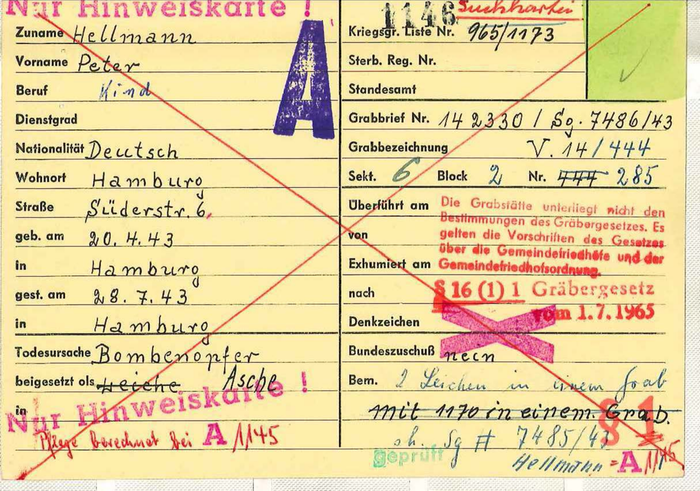 Nur Hinweiskarte !
Zuname Hellmann
Vorname Peter
Beruf Kind
Dienstgrad
Nationalität Deutsch
Wohnort Hamburg
Straße Süderstr. 6,
geb. am 20.4.43
in Hamburg
gest. am 28.7.43
in Hamburg
Todesursache Bombenopfer
beigesetzt als Leiche Asche
in
Nur Hinweiskarte !
Pflege berechnet bei A 1145
A
1146 Suchkartei
Kriegsgr. Liste Nr. 965/1173
Sterb. Reg. Nr.
Standesamt
Grabbrief Nr. 142330 / Sg. 7486/43
Grabbezeichnung V. 14/444
Sekt. 6 Block 2 Nr. 444 285
Überführt am
von
Exhumiert am
nach
Die Grabstätte unterliegt nicht den
Bestimmungen des Gräbergesetzes. Es
gelten die Vorschriften des Gesetzes
über die Gemeindefriedhöfe und der
Gemeindefriedhofsordnung.
§ 16 (1) 1 Gräbergesetz
vom 1.7.1965
Denkzeichen
Bundeszuschuß nein
Bem. 2 Leichen in einem Grab
mit 1170 in einem Grab.
§ 1
sh. Sg # 7485/43
geprüft
Hellmann = A 1145